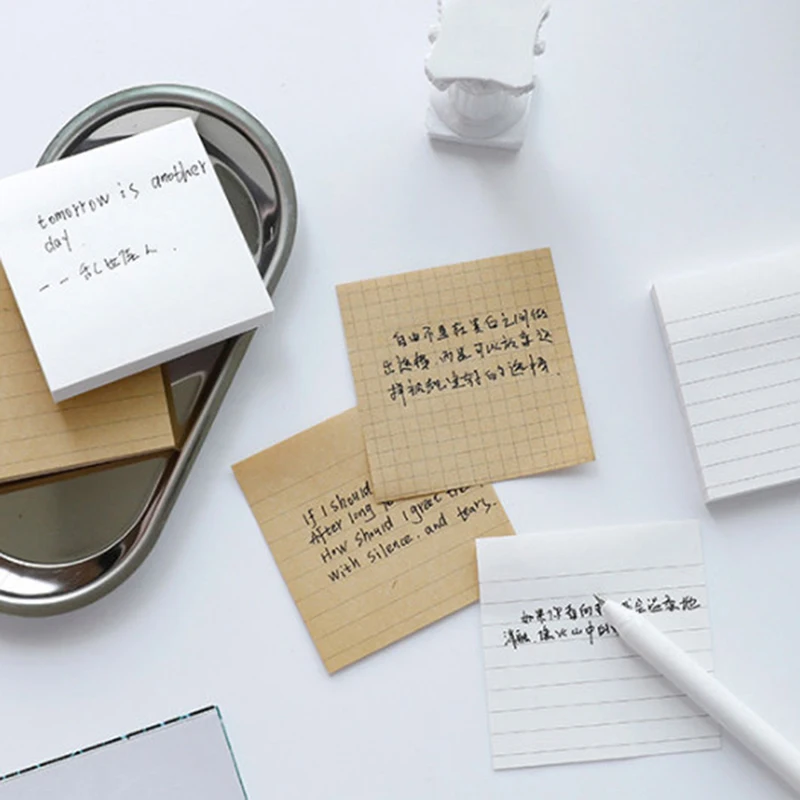 tomorrow is another
day.
——乱世佳人.
自由不是在黑白之间做
出选择,而是可以放弃这
样被规定好的选择.
If I should
After long
How should I greet
with silence. and tears.
如果你看向我 会迅速地
消融,像火山中的